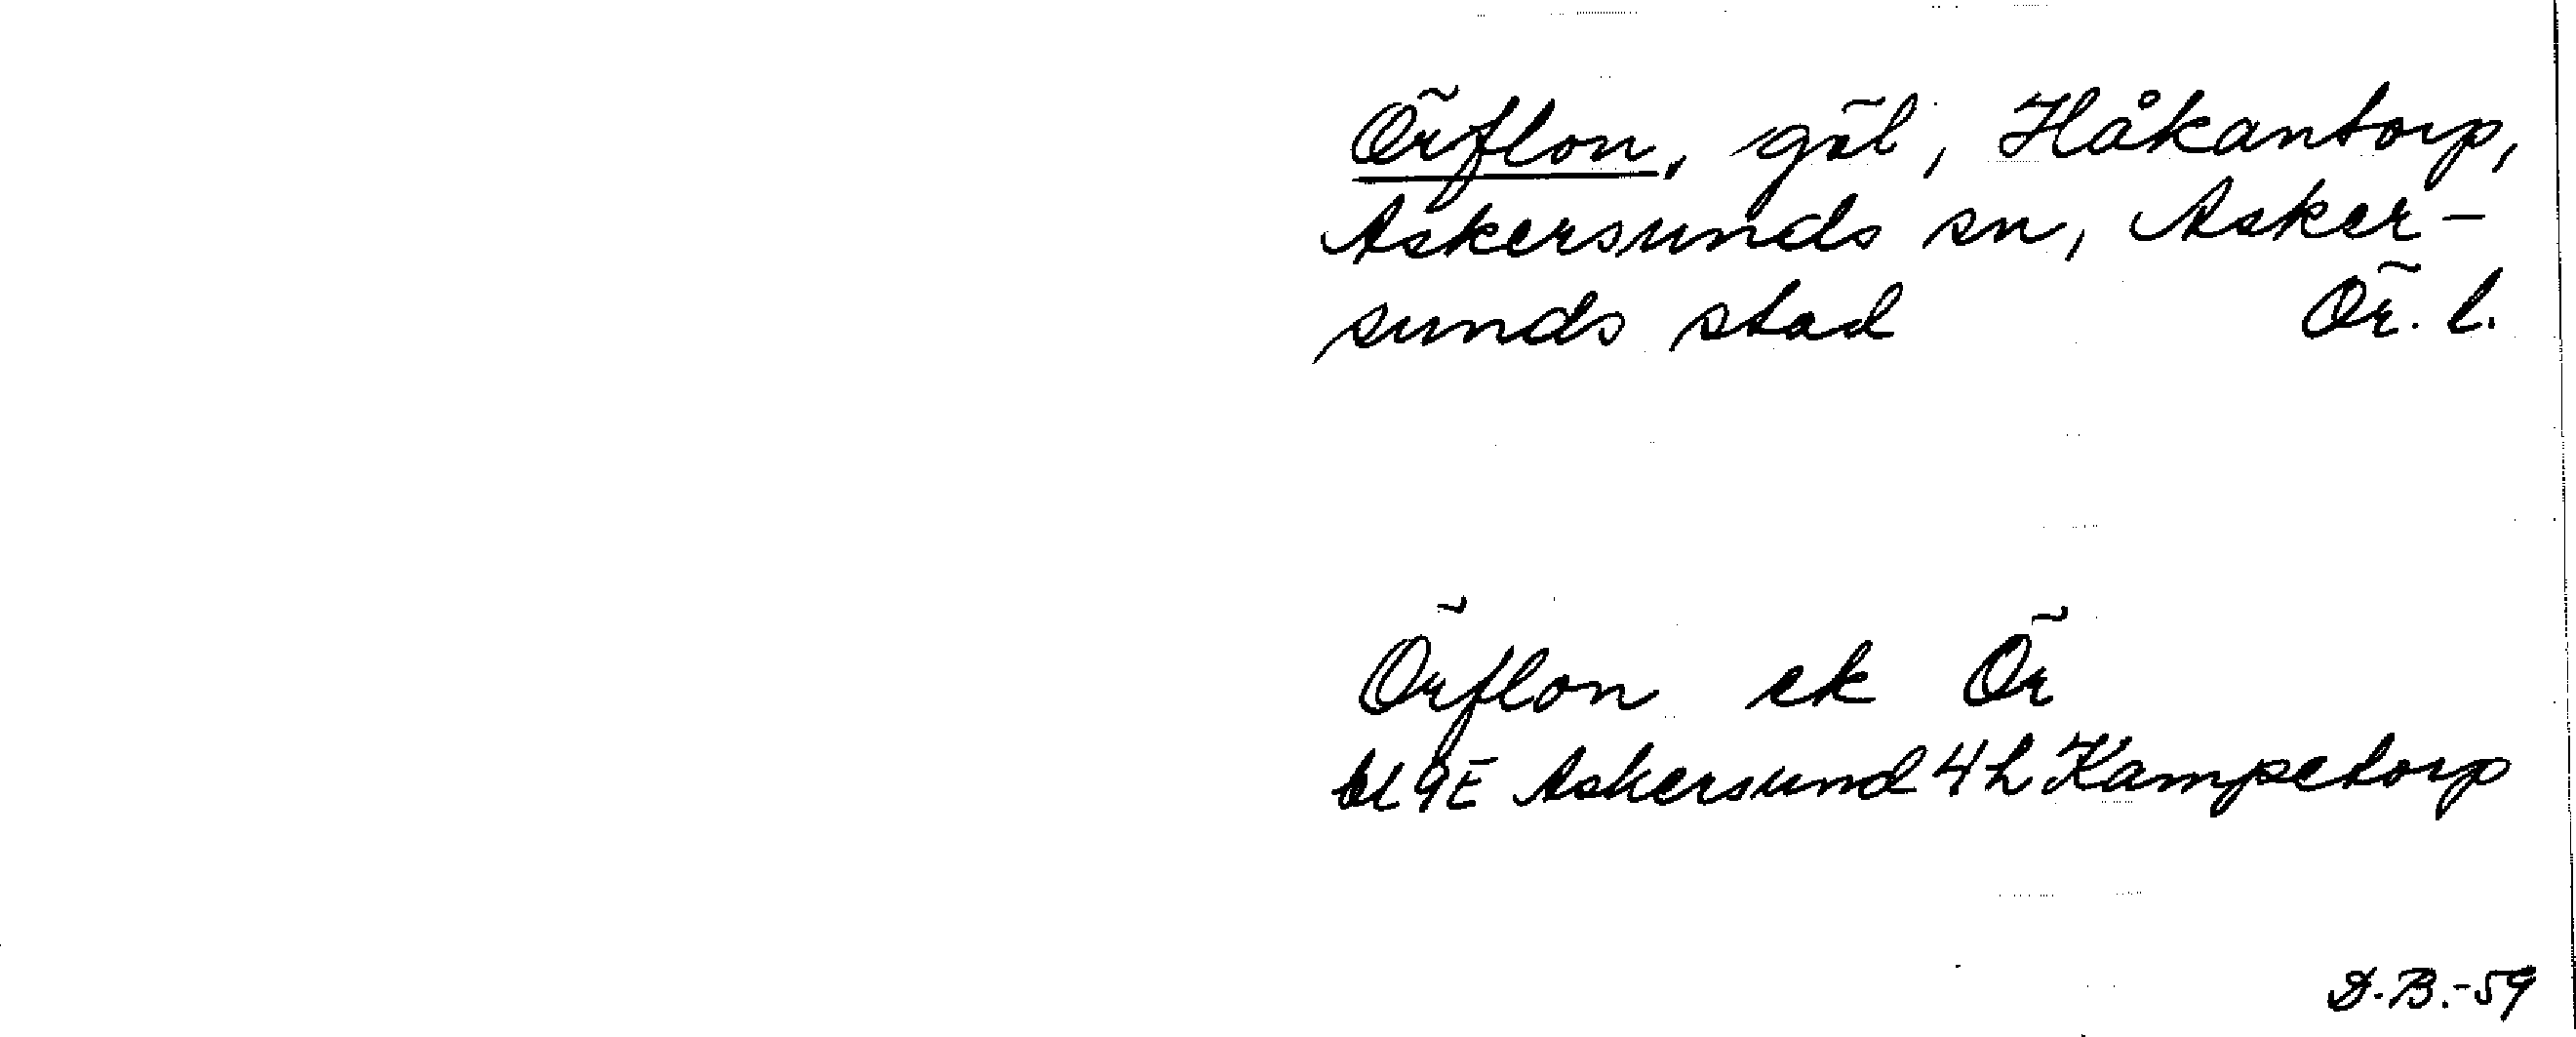 Örflon, göl, Håkantorp,
Askersunds sn, Asker-
sunds stad Ör. l.
Örflon ek Ör
bl 9E Askersund 4h Kampetorp
D.B.-59